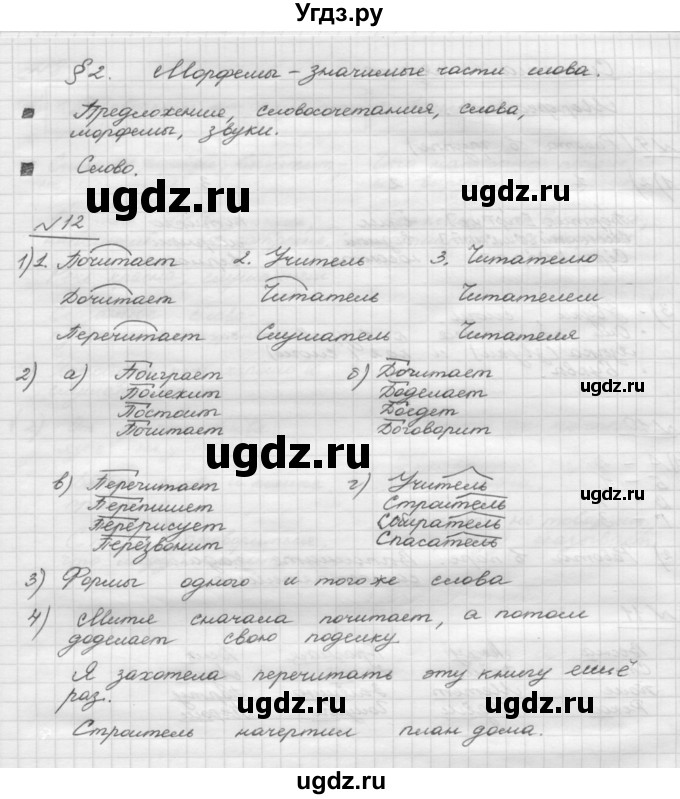 Угдз.ру
§ 2. Морфемы – значимые части слова.
Предложение, словосочетания, слова,
морфемы, звуки.
Слово.
ugdz.ru ugdz.ru
№12
1) 1. Почитает 2. Учитель 3. Читателю
Дочитает Читатель Читателем
Перечитает Слушатель Читателя
ugdz.ru
2) а) Поиграет б) Дочитает
Полежит Доделает ugdz.ru
Постоит Доедет
Почитает Договорит
ugdz.ru
в) Перечитает г) Учитель
Перепишет Строитель ugdz.ru
Перерисует Собиратель
Перезвонит Спасатель
3) Формы одного и того же слова
4) Митя сначала почитает, а потом
доделает свою поделку
Я захотела перечитать эту книгу ещё
раз.
ugdz.ru ugdz.ru
Строитель начертил план дома.
ugdz.ru